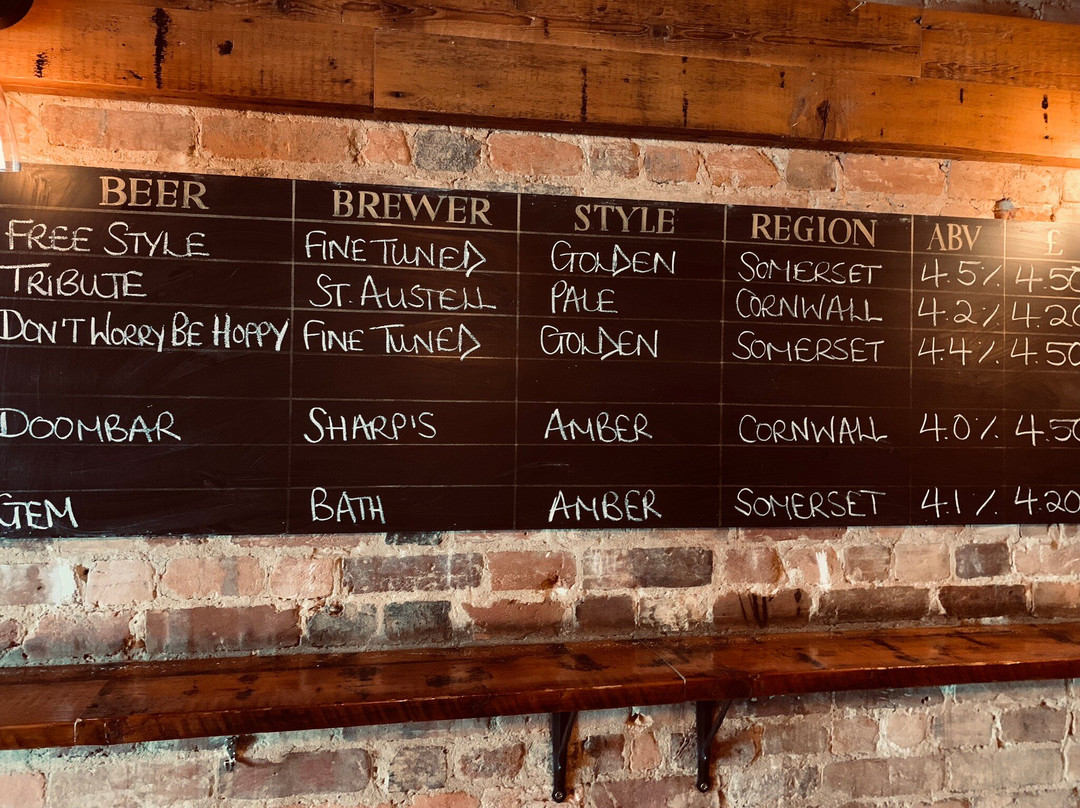 BEER BREWER STYLE REGION ABV £
FREE STYLE FINE TUNED GOLDEN SOMERSET 4.5% 4.50
TRIBUTE ST. AUSTELL PALE CORNWALL 4.2% 4.20
DON'T WORRY BE HOPPY FINE TUNED GOLDEN SOMERSET 4.4% 4.50
DOOMBAR SHARP'S AMBER CORNWALL 4.0% 4.50
GEM BATH AMBER SOMERSET 4.1% 4.20